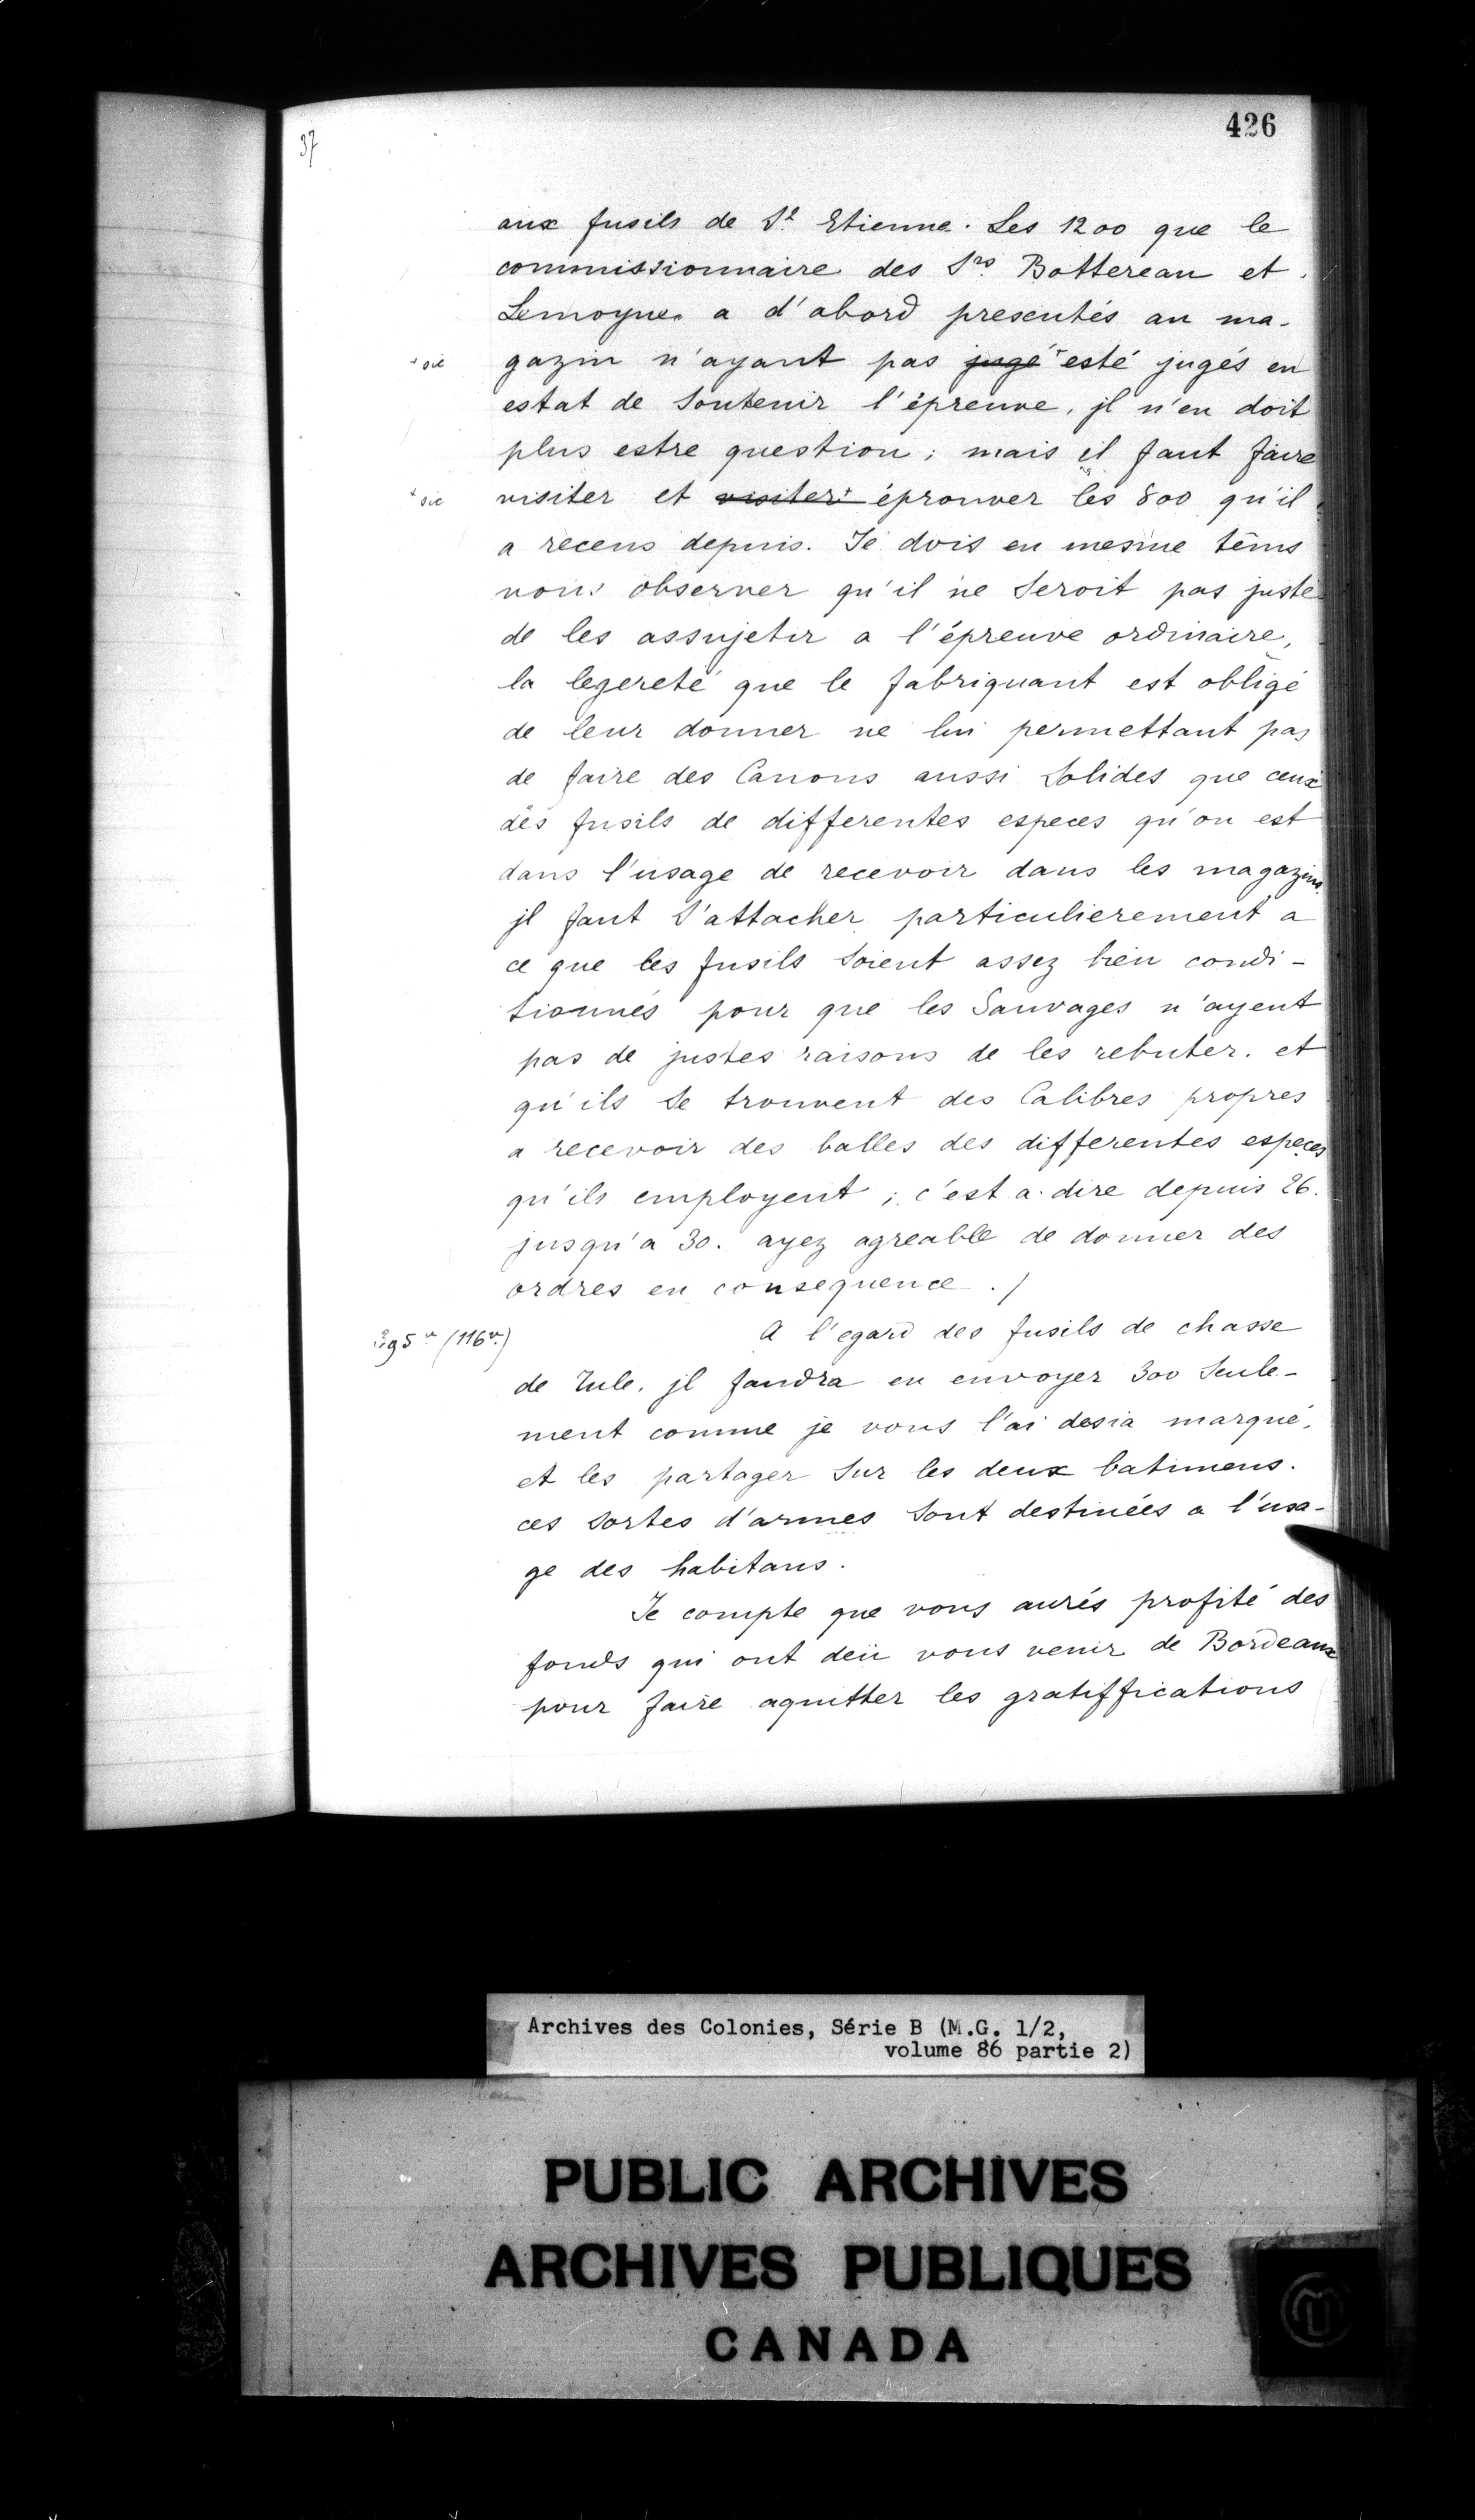 426
37
aux fusils de St Etienne. Les 1200 que le
commissionnaire des Srs Bottereau et
Lemoyne a d'abord presentés au ma-
+ sic gazin n'ayant pas jugé + esté jugés en
estat de soutenir l'épreuve, jl n'en doit
plus estre question; mais il faut faire
+ sic visiter et visiter + éprouver les 800 qu'il
a receus depuis. Je dois en mesme têms
vous observer qu'il ne seroit pas juste
de les assujetir a l'épreuve ordinaire,
la legereté que le fabriquant est obligé
de leur donner ne lui permettant pas
de faire des Canons aussi solides que ceux
des fusils de differentes especes qu'on est
dans l'usage de recevoir dans les magazins.
jl faut s'attacher particulierement a
ce que les fusils soient assez bien condi-
tionnés pour que les Sauvages n'ayent
pas de justes raisons de les rebuter. et
qu'ils se trouvent des Calibres propres
a recevoir des balles des differentes especes
qu'ils employent; c'est a dire depuis 26.
jusqu'a 30. ayez agreable de donner des
ordres en consequence ./
395 vo (116 vo.) A l'egard des fusils de chasse
de Tule. jl faudra en envoyer 300 seule-
ment comme je vous l'ai desia marqué,
et les partager sur les deux batimens.
ces sortes d'armes sont destinées a l'usa-
ge des habitans.
Je compte que vous aurés profité des
fonds qui ont deü vous venir de Bordeaux
pour faire aquitter les gratiffications
Archives des Colonies, Série B (M.G. 1/2,
volume 86 partie 2)
PUBLIC ARCHIVES
ARCHIVES PUBLIQUES
CANADA